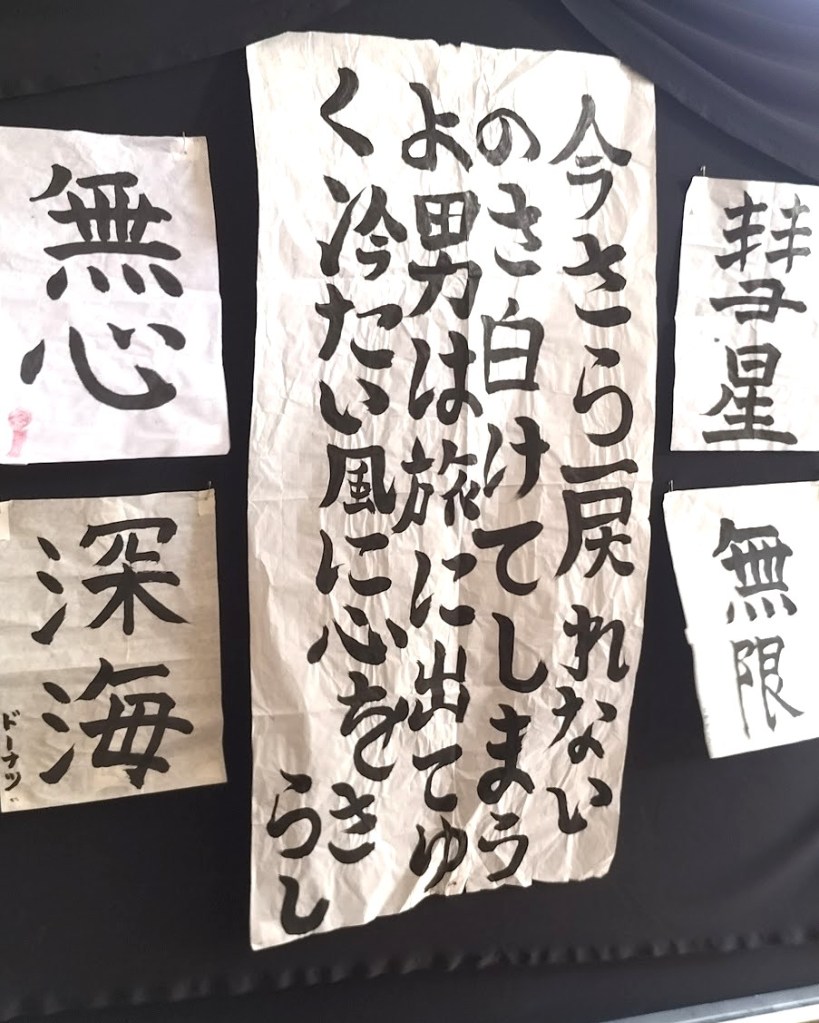 彗星
無限
今さら戻れない
のさ白けてしまう
よ男は旅に出てゆ
く冷たい風に心をさ
らし
無心
深海
ドーナツ